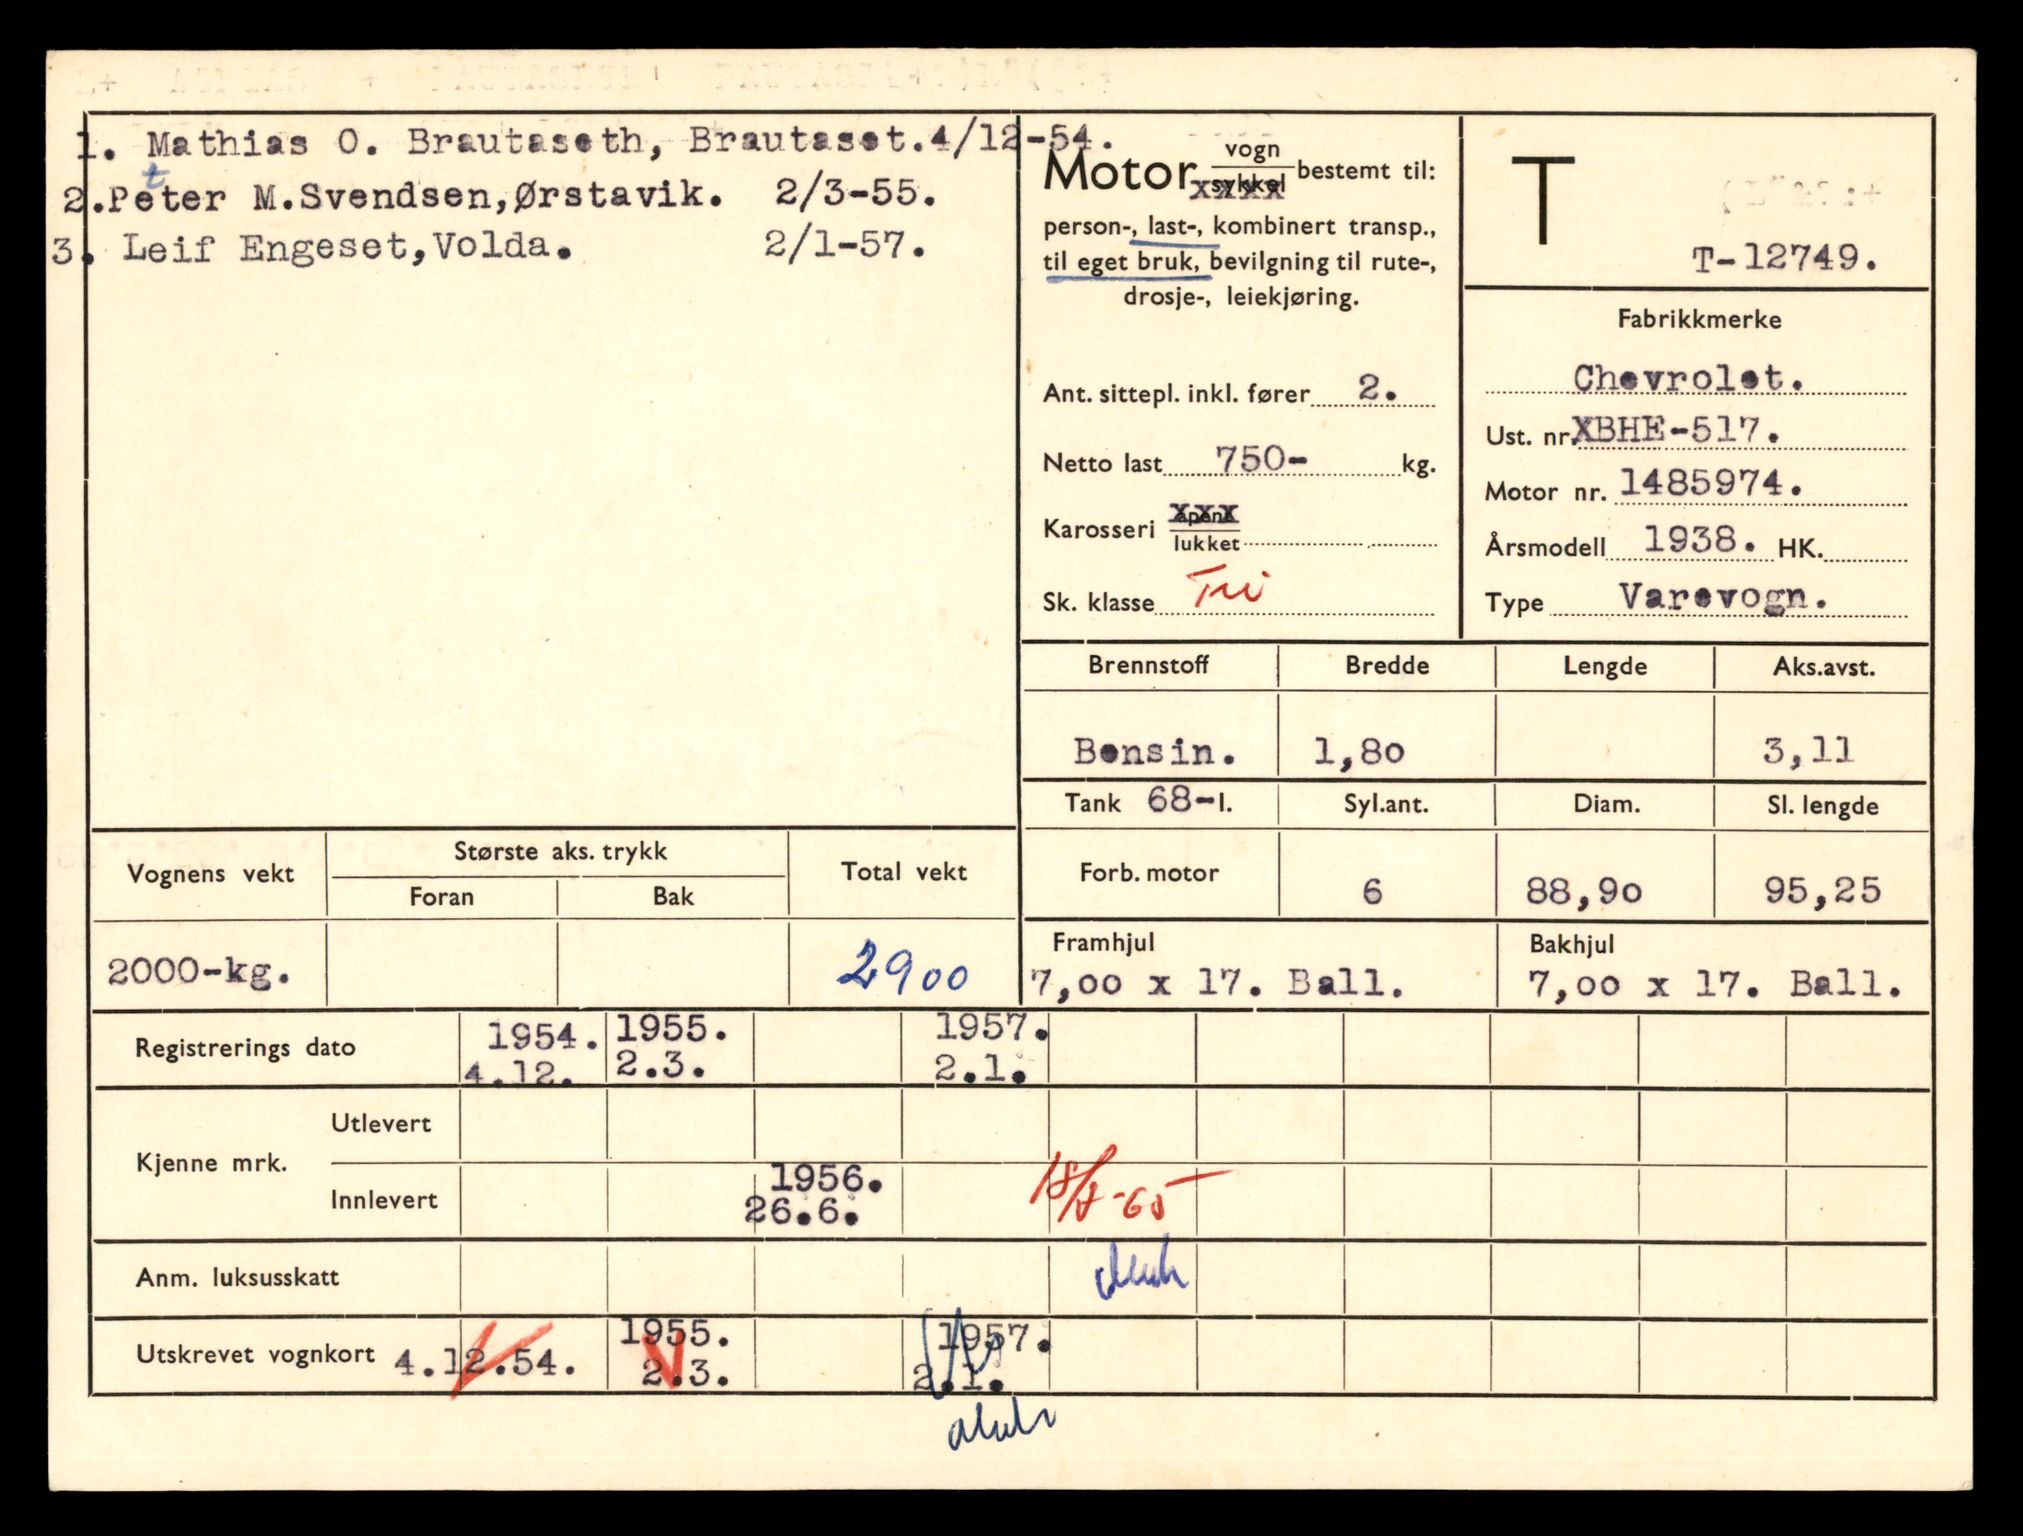 1. Mathias O. Brautaseth, Brautaset.4/12-54.
t
2.Peter M.Svendsen,Ørstavik. 2/3-55.
3. Leif Engeset,Volda. 2/1-57.
Motor vogn sykkel bestemt til:
xxxx
person-, last-, kombinert transp.,
til eget bruk, bevilgning til rute-,
drosje-, leiekjøring.
Ant. sittepl. inkl. fører 2.
Netto last 750- kg.
Karosseri åpent lukket
xxx
Sk. klasse Tri
T
T-12749.
Fabrikkmerke
Chevrolet.
Ust. nr. XBHE-517.
Motor nr. 1485974.
Årsmodell 1938. HK.
Type Varevogn.
Brennstoff Bredde Lengde Aks.avst.
Bensin. 1,80 3,11
Tank 68-l. Syl.ant. Diam. Sl. lengde
Forb. motor 6 88,90 95,25
Framhjul Bakhjul
7,00 x 17. Ball. 7,00 x 17. Ball.
Vognens vekt Største aks. trykk Total vekt
Foran Bak
2000-kg. 2900
Registrerings dato 1954. 1955. 1957.
4.12. 2.3. 2.1.
Kjenne mrk. Utlevert
Innlevert 1956.
26.6.
Anm. luksusskatt
Utskrevet vognkort 4.12.54. 1955. 1957.
2.3. 2.1.